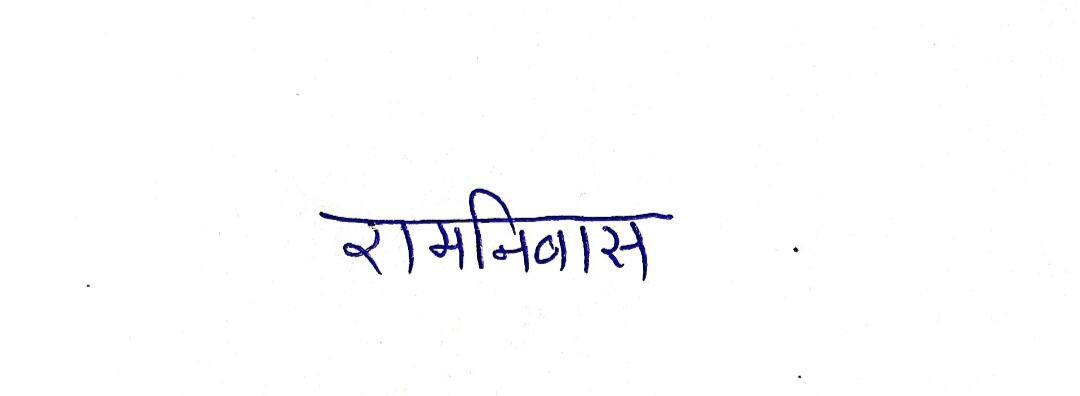 रामनिवास